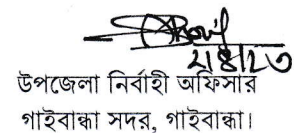 ২/৪/২৩
উপজেলা নির্বাহী অফিসার
গাইবান্ধা সদর, গাইবান্ধা।